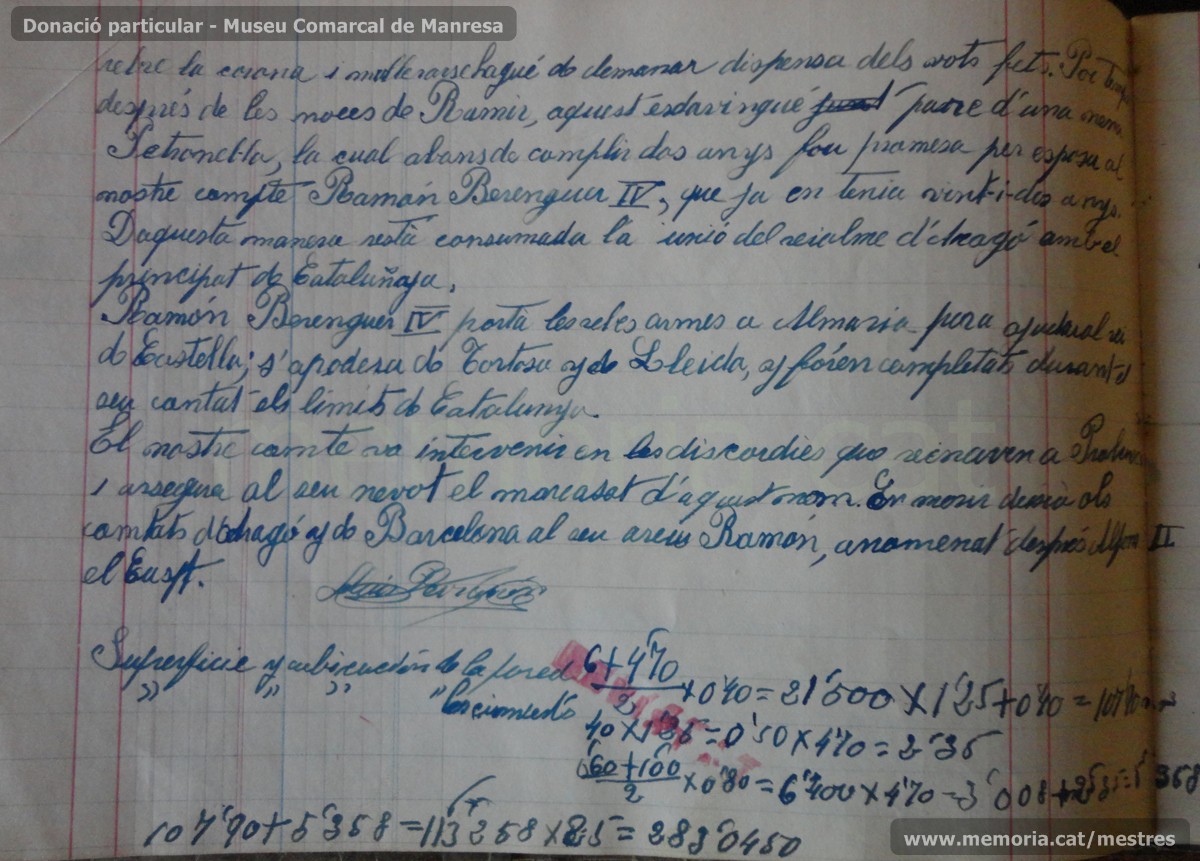 Donació particular - Museu Comarcal de Manresa
rebre la corona i mullerarse hagué de demanar dispensa dels vots fets. Poc temps
després de les noces de Ramir, aquest esdavingué pare d'una nena
Petronel·la, la cual abans de complir dos anys fou promesa per esposa al
nostre compte Ramón Berenguer IV, que ja en tenia vint-i-dos anys.
Daquesta manera restà consumada la unió del reialme d'Aragó amb el
principat de Cataluñaya.
Ramón Berenguer IV portà les seles armes a Almaria para ajudar al rei
de Castella; s'apodera de Tortosa y de Lleida, y fóren completats durant el
seu contat els límits de Catalunya.
El nostre comte va intervenir en les discordies que reinaven a
i assegura al seu nevot el marcasat d'aquest nom. En morir deixà els
comtats d'Aragó y de Barcelona al seu areu Ramón, anomenat després Alfons II
el Cast.
Superficie y cubicación de la pared 6+4'70/2 ×0'40=21'500×1'25+0'40=107'90
" " " "
40×1'25=0'50×4'70=2'35
60+100/2 ×0'80=6'400×4'70=3'008+2'35=5'358
107'90+5'358=113'258×25=2830450
www.memoria.cat/mestres